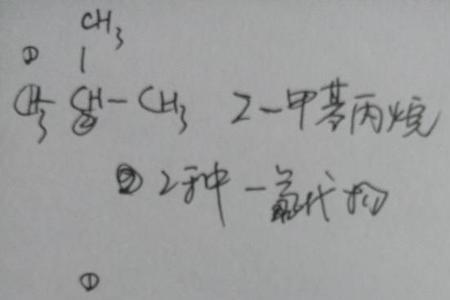 CH3
① |
CH3-CH-CH3 2-甲基丙烷
②
② 2种一氯代物
①